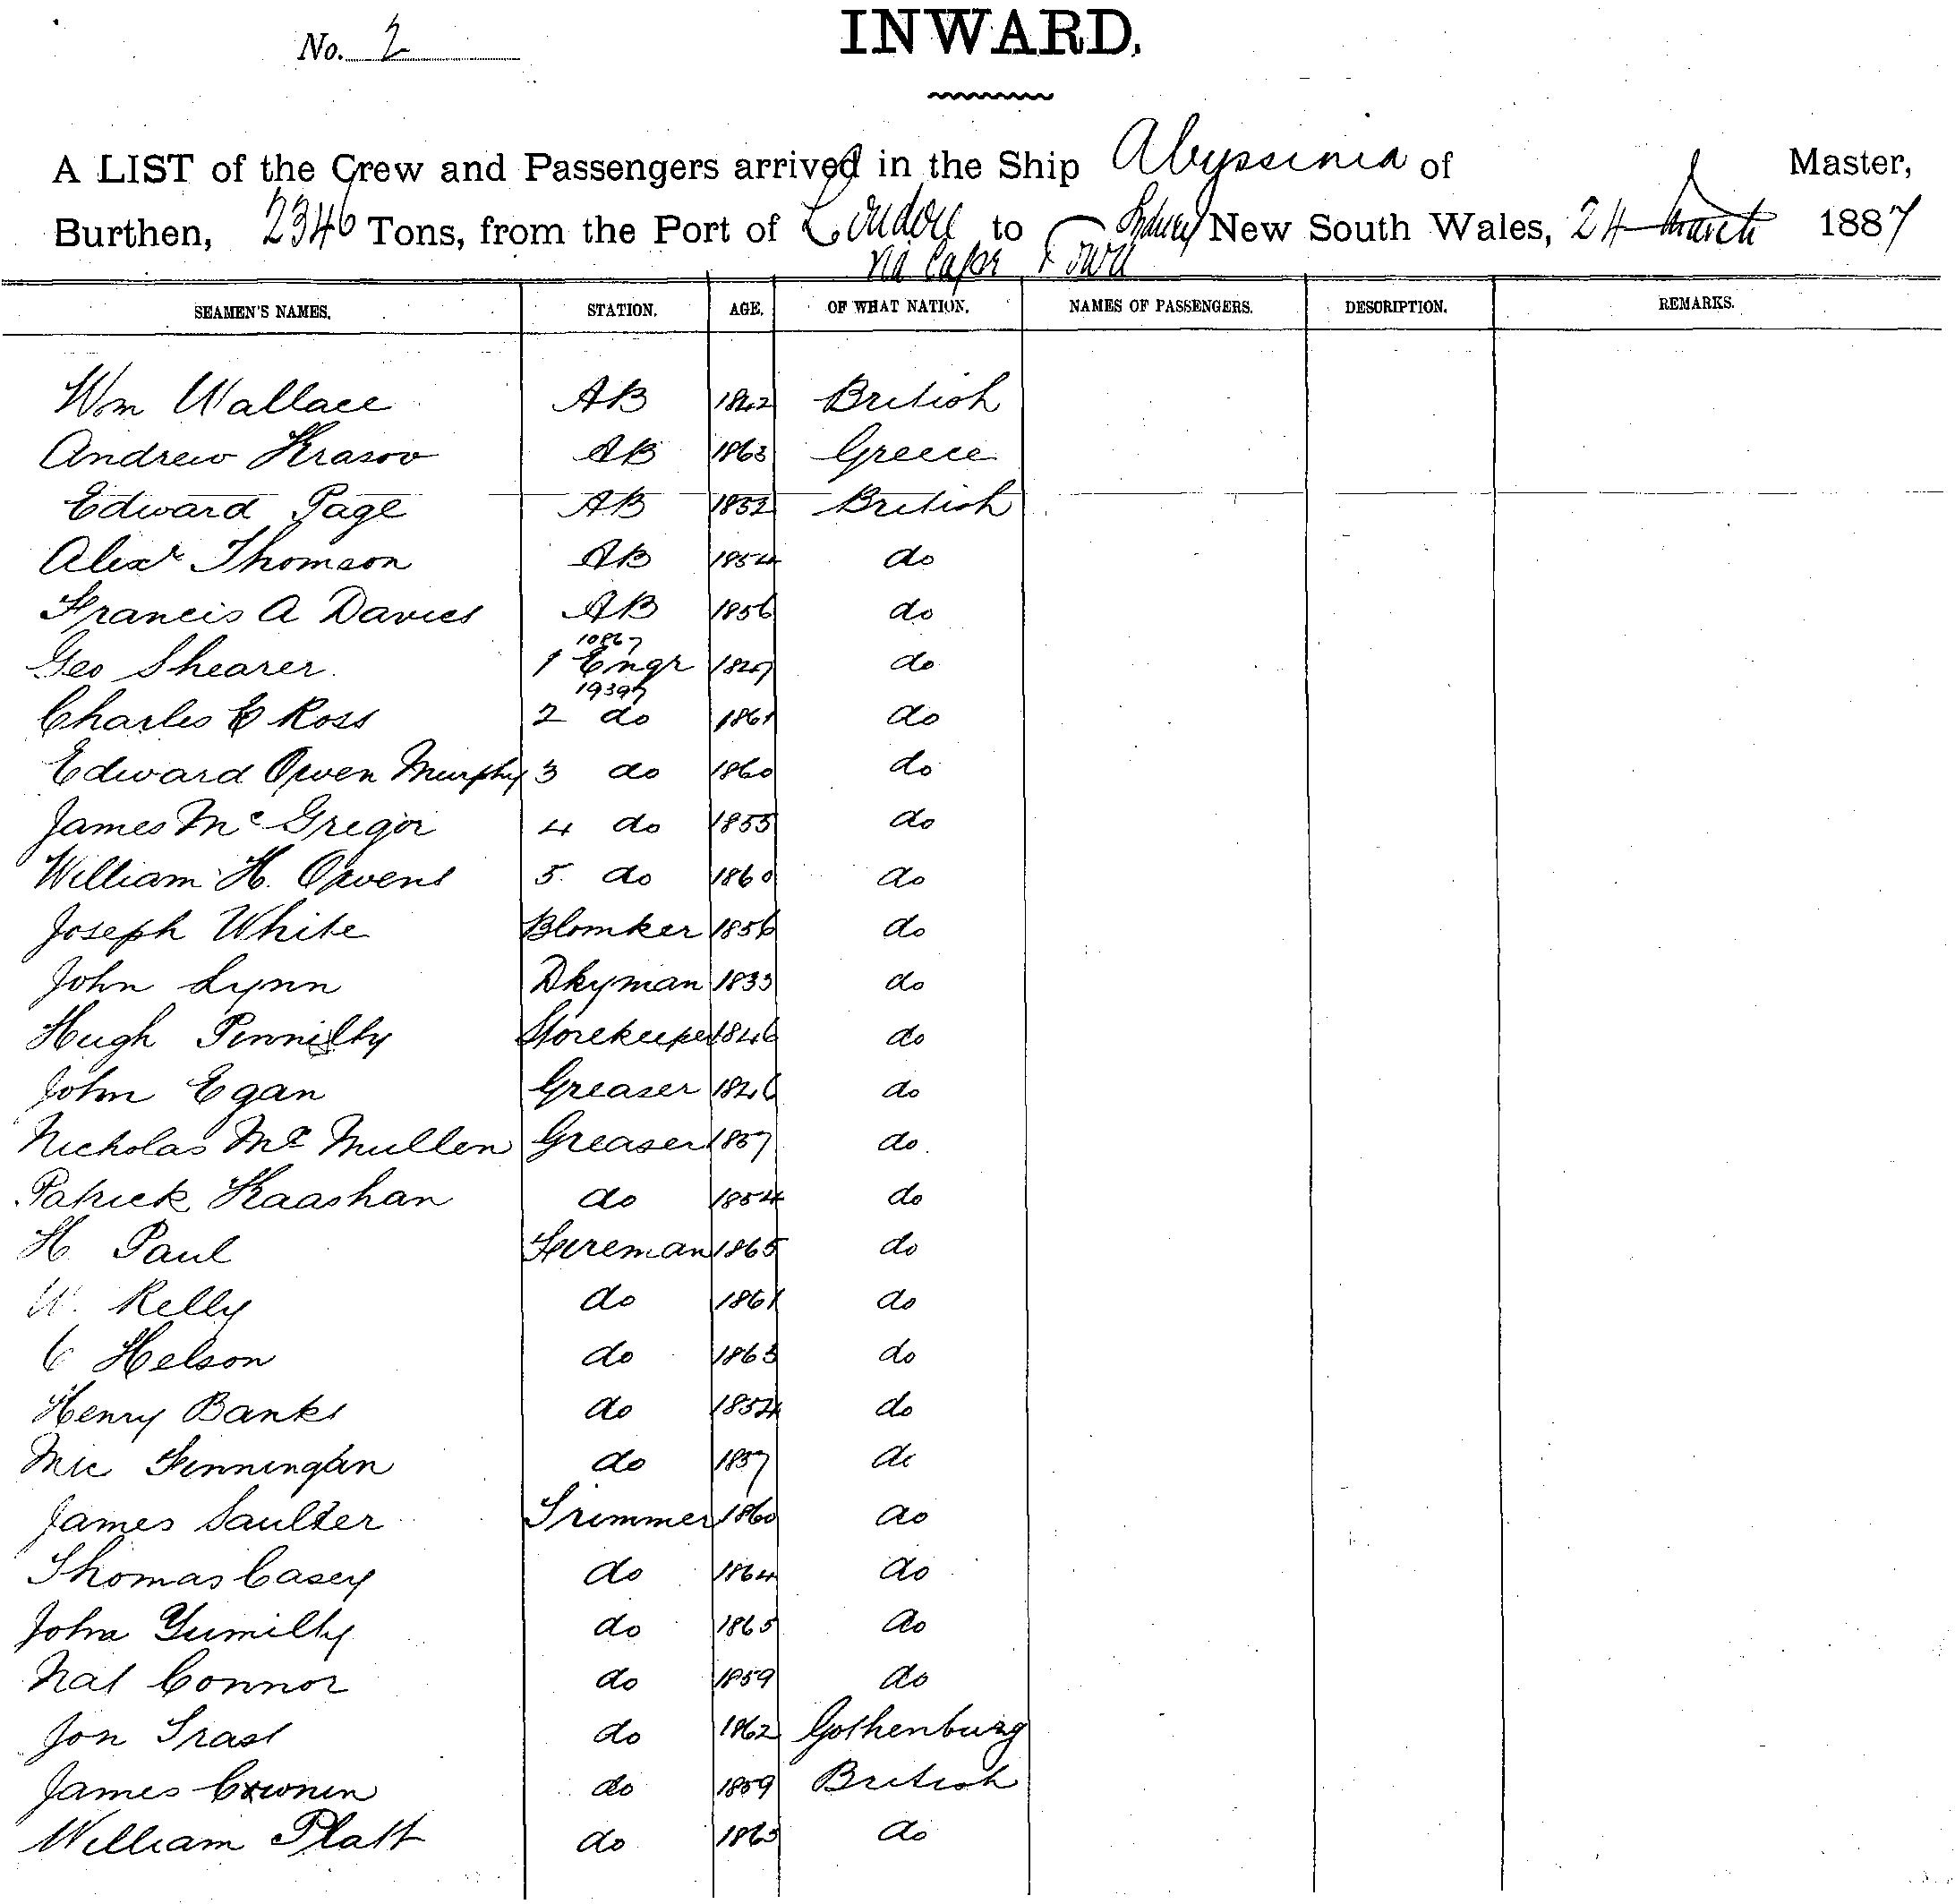 No. 2
INWARD.
A LIST of the Crew and Passengers arrived in the Ship Abyssinia of Master,
Burthen, 2346 Tons, from the Port of London to Sydney New South Wales, 24 March 1887
via Cape Town
SEAMEN'S NAMES. STATION. AGE. OF WHAT NATION. NAMES OF PASSENGERS. DESCRIPTION. REMARKS.
Wm Wallace AB 1842 British
Andrew Krasov AB 1863 Greece
Edward Page AB 1852 British
Alexr Thomson AB 1854 do
Francis A Davies AB 1856 do
10867
Geo Shearer 1 Engr 1847 do
19397
Charles E Ross 2 do 1861 do
Edward Owen Murphy 3 do 1860 do
James McGregor 4 do 1855 do
William H. Owens 5 do 1860 do
Joseph White Blomker 1856 do
John Lynn Dkyman 1833 do
Hugh Storekeeper 1846 do
John Egan Greaser 1846 do
Nicholas McMullen Greaser 1857 do
Patrick Kaashan do 1854 do
H Paul Fireman 1865 do
W. Kelly do 1861 do
C Helson do 1863 do
Henry Banks do 1854 do
Mic Finningan do 1857 do
James Saulter Trimmer 1860 do
Thomas Casey do 1864 do
John do 1865 do
Nat Connor do 1859 do
Jon Trast do 1862 Gothenburg
James do 1859 British
William Platt do 1865 do